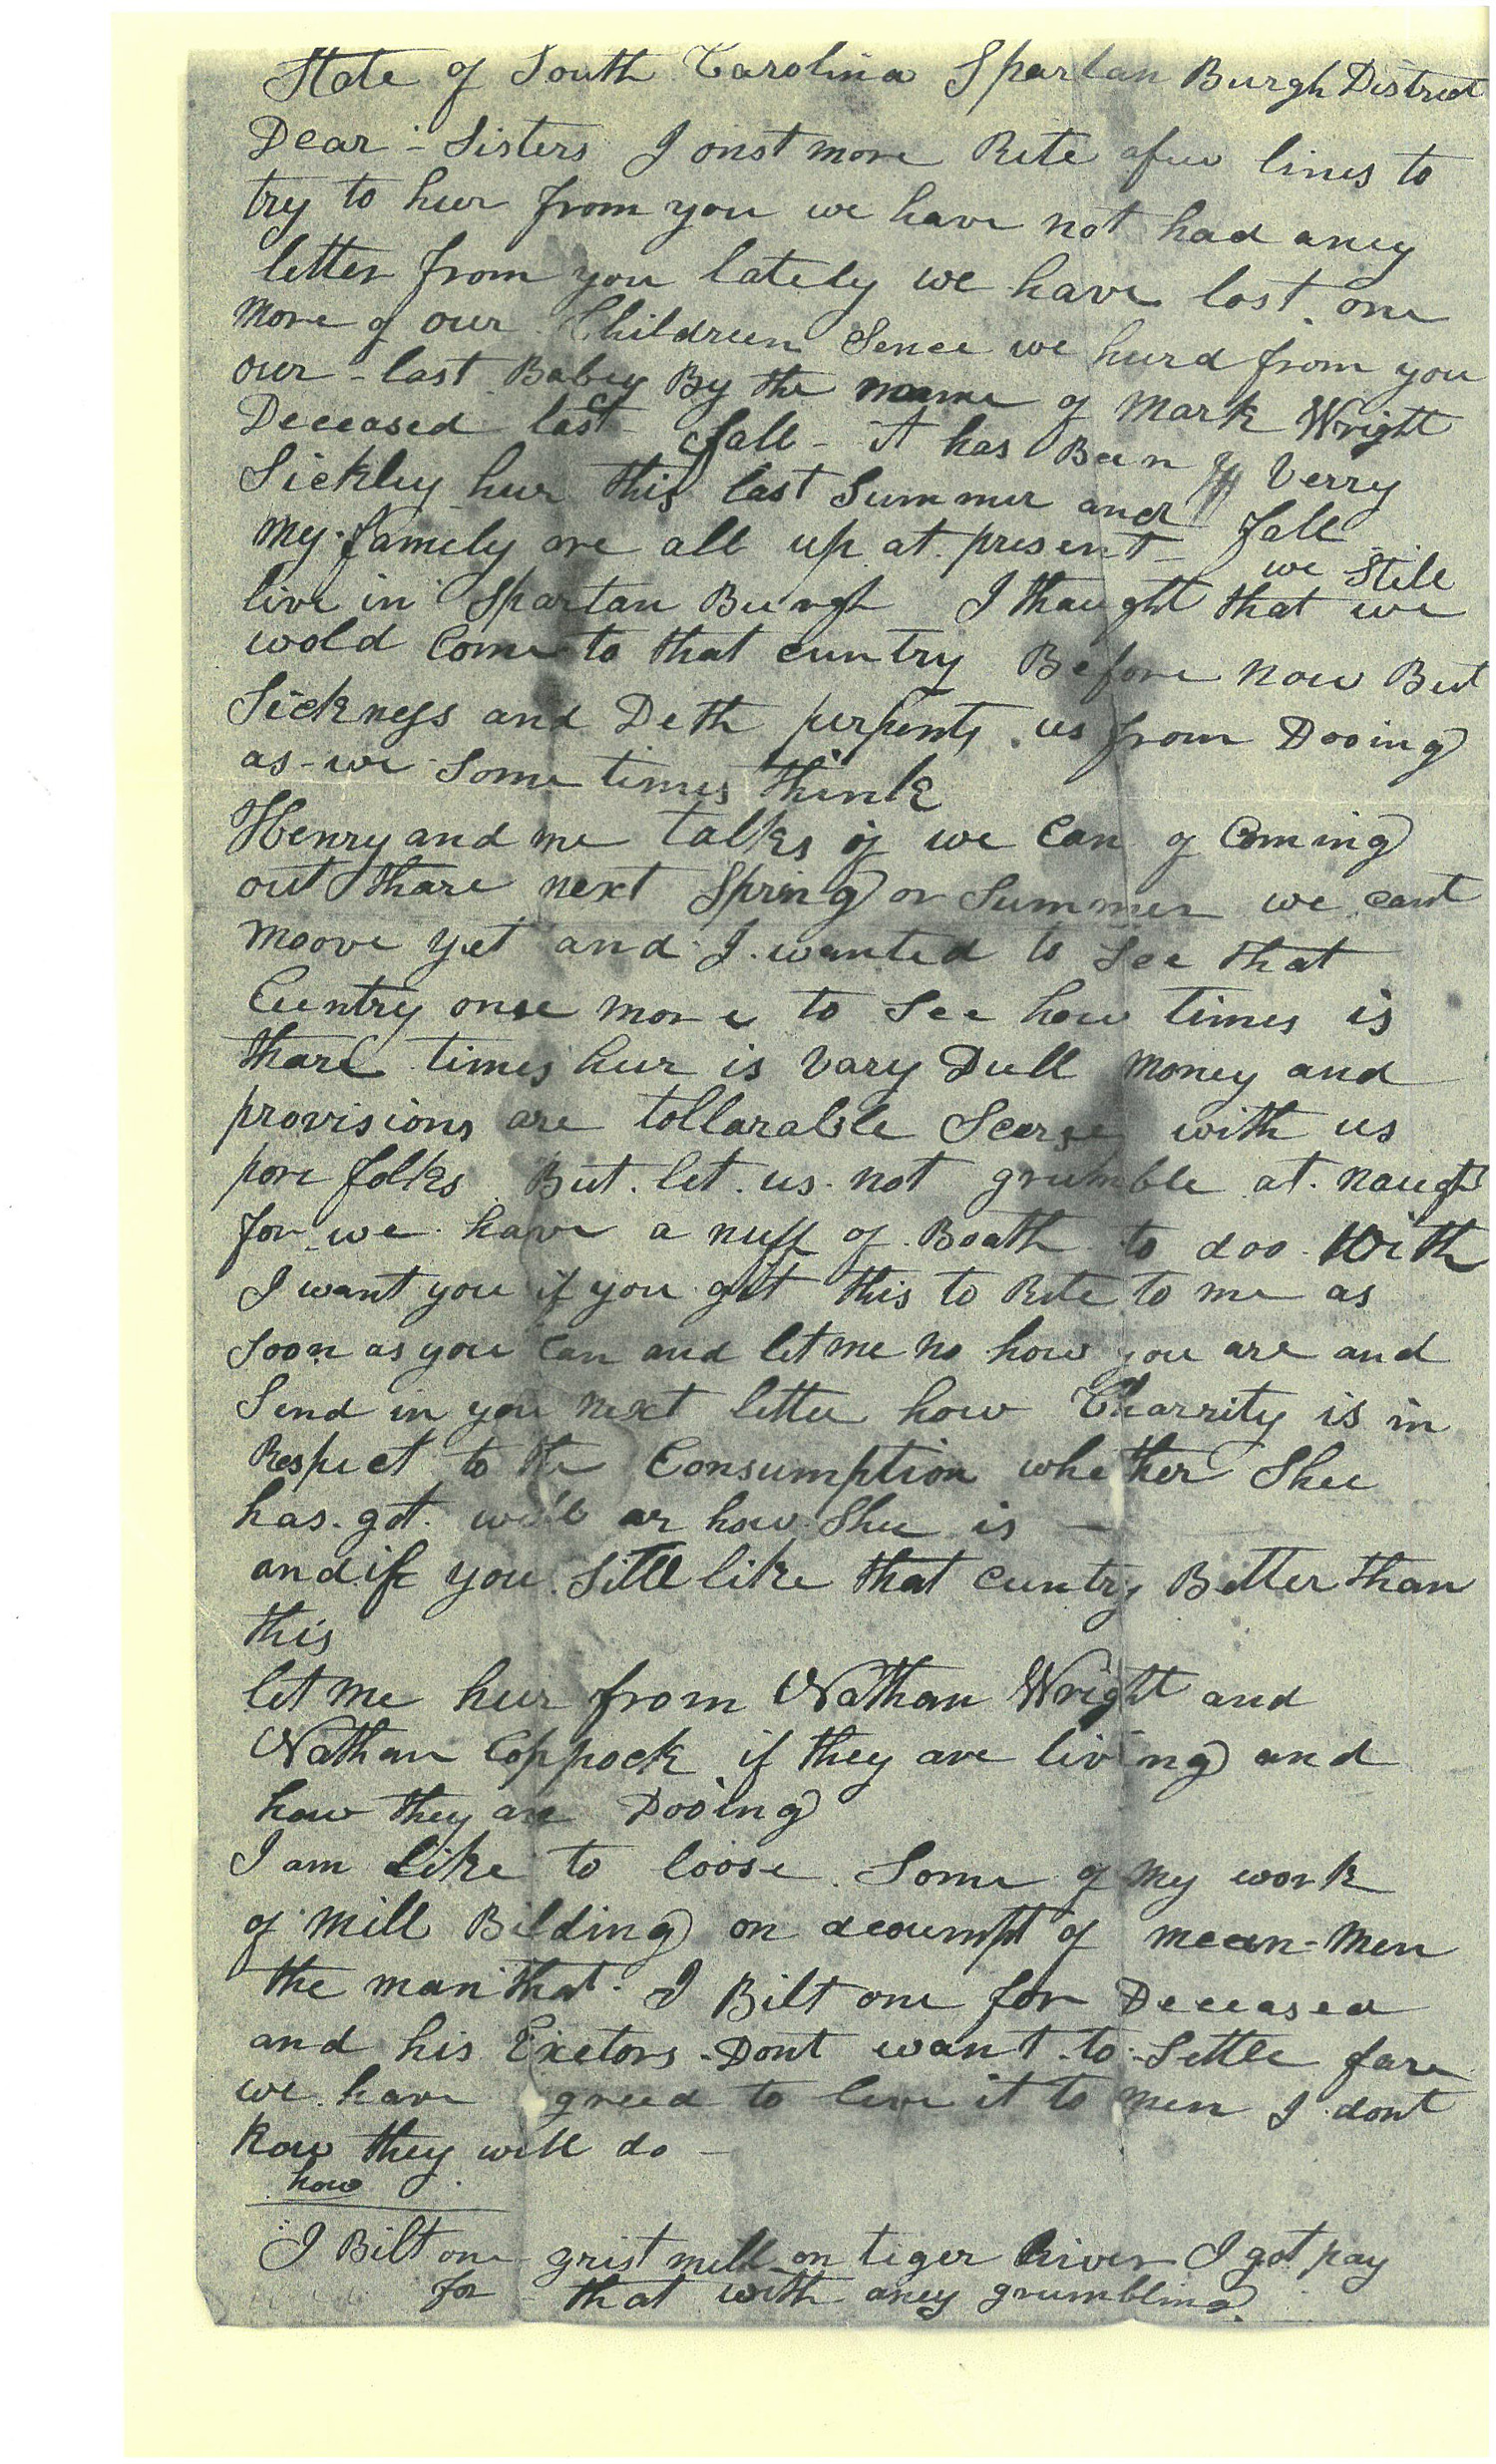 State of South Carolina Spartan Burgh District
Dear - Sisters I onst more Rite afew lines to
try to heer from you we have not had aney
letter from you lately we have lost one
more of our Childreen Sence we hurd from you
our - last Babey By the name of Mark Wright
Deceased last fall - it has Been Verry
Sickley heer this last Summer and fall
my family are all up at present - we Still
live in Spartan Burgh I thaught that we
wold Come to that cuntry Before now But
Sickness and Deth perpents us from Dooing
as - we Some times think
Henry and me talks if we Can of Coming
out thare next Spring or Summer we cant
moove yet and I wanted to See that
Cuntry onse more to See how times is
thare times heer is vary Dull money and
provisions are tollarable Scerse with us
pore folks But let us not grumble at naught
for we have a nuff of Boath to doo with
I want you if you get this to Rite to me as
soon as you Can and let me no how you are and
Send in you next letter how Charrity is in
Respect to the Consumption whether Shee
has got well ar how Shee is -
and if you Still like that cuntry Better than
this
let me heer from Nathan Wright and
Nathan Coppock if they are living and
how they are Dooing
I am like to loose Some of my work
of mill Bilding on acoumpt of mean - men
the man that I Bilt one for Deceased
and his Exetors Dont want to Settle fare
we have greed to leve it to men I dont
Kow they will do -
how
I Bilt one grist mill on teger River I got pay
for that with aney grumbling.